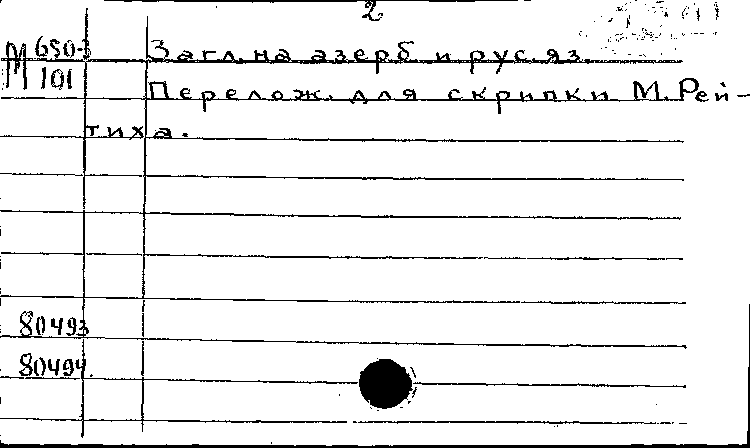 2
М 650-3
101
Загл. на азерб и рус. яз.
Перелож. для скрипки М. Рей-
тиха.
80493
80494.